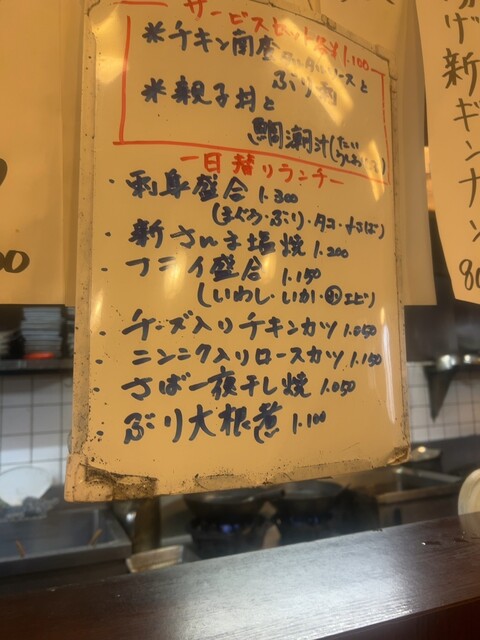 サービスセット 各¥1.100
※チキン南蛮タルタルソースと
ぶり刺
※親子丼と
鯛潮汁(たい
一日替りランチー
・刺身盛合 1.300
(まぐろ・ぶり・タコ・〆さば)
・新さんま塩焼 1.200
・フライ盛合 1.150
(いわし・いか・エビ)
・チーズ入りチキンカツ 1.050
・ニンニク入りロースカツ 1.150
・さば一夜干し焼 1.050
・ぶり大根煮 1.100
げ新ギンナン
80
00